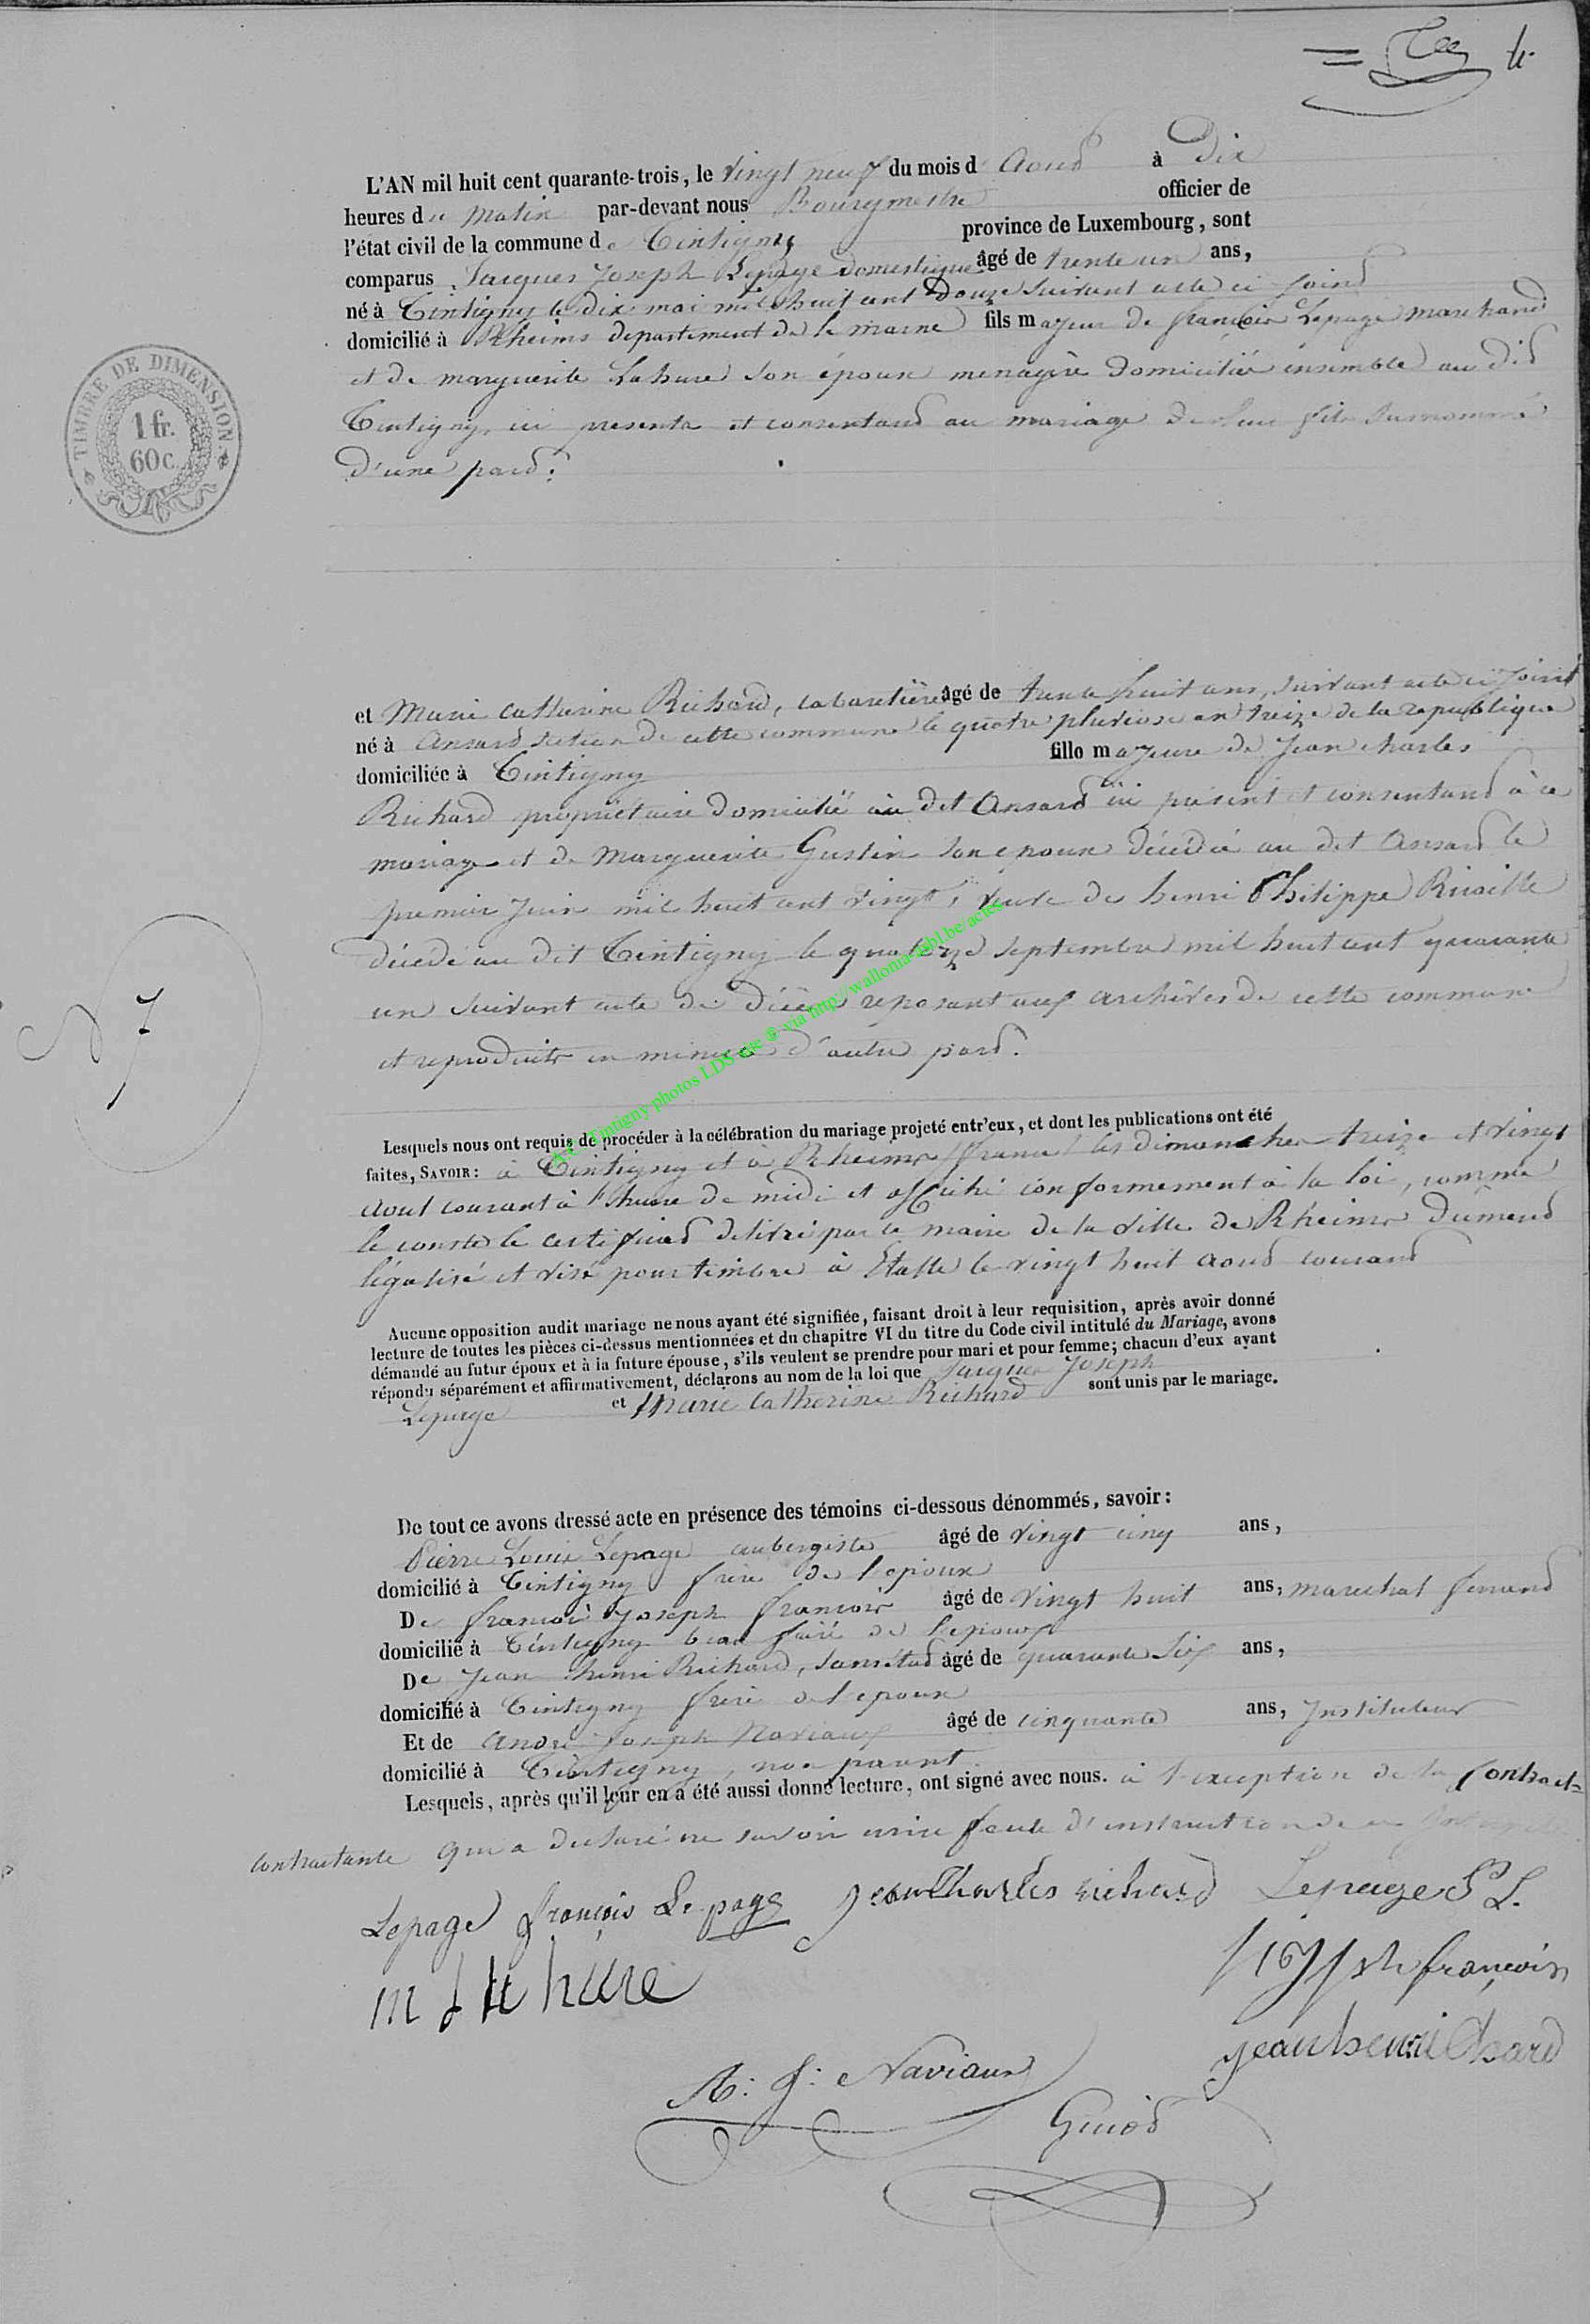 4.
L'AN mil huit cent quarante-trois, le vingt neuf du mois d'Aout à Dix
heures du matin par-devant nous Bourgmestre officier de
l'état civil de la commune de Tintigny province de Luxembourg, sont
comparus Jacques Joseph Lepage domestique âgé de trente un ans,
né à Tintigny le dix mai mil huit cent douze suivant acte ci joint
domicilié à Rheims departement de la marne fils majeur de françois Lepage marchand
et de marguerite Lahure son épouse menagère domiciliés ensemble au dit
Tintigny, ici presents et consentans au mariage de leur fils surnommé
d'une part.
TIMBRE DE DIMENSION.
1 fr.
60 c.
et Marie Catherine Richard, cabaretière âgé de trente huit ans, suivant acte ci joint
né à Ansard section de cette commune le quatre pluviose an treize de la republique
domiciliée à Tintigny fille majeure de Jean charles
Richard propriétaire domicilié au dit Ansard ici présent et consentant à ce
mariage et de Marguerite Gustin son epouse décédée au dit Ansard le
premier Juin mil huit cent vingt, veuve de henri Philippe
décédé au dit Tintigny le quatorze septembre mil huit cent quarante
un suivant acte de décès reposant aux archives de cette commune
et reproduits en minute d'autre part.
N 7
Lesquels nous ont requis de procéder à la célébration du mariage projeté entr'eux, et dont les publications ont été
faites, SAVOIR: à Tintigny et à Rheims france les dimanches treize et vingt
Aout courant à l'heure de midi et affiché conformement à la loi, comme
le conste le certificat délivré par le maire de la ville de Rheims dûment
légalisé et visé pour timbre à Etalle le vingt huit aout courant
Aucune opposition audit mariage ne nous ayant été signifiée, faisant droit à leur requisition, après avoir donné
lecture de toutes les pièces ci-dessus mentionnées et du chapitre VI du titre du Code civil intitulé du Mariage, avons
démandé au futur époux et à la future épouse, s'ils veulent se prendre pour mari et pour femme; chacun d'eux ayant
répondu séparément et affirmativement, déclarons au nom de la loi que Jacques Joseph
Lepage et Marie Catherine Richard sont unis par le mariage.
De tout ce avons dressé acte en présence des témoins ci-dessous dénommés, savoir:
Pierre Louis Lepage aubergiste âgé de vingt cinq ans,
domicilié à Tintigny frère de l'epoux
De françois Joseph françois âgé de vingt huit ans, marechal ferrand
domicilié à Tintigny beau frère de l'epoux
De Jean henri Richard, sans état âgé de quarante six ans,
domicilié à Tintigny frère de l'epouse
Et de André Joseph Naviaux âgé de cinquante ans, Instituteur
domicilié à Tintigny, non parent
Lesquels, après qu'il leur en a été aussi donné lecture, ont signé avec nous. à l'exception de la Contract-
contractante qui a declaré ne savoir ecrire faute d'instruction de ce
Lepage françois Lepage Jean Charles richard Lepage P L.
m Lahure
françois
jean henri
A: J: Naviaux
Guiot
A.C. Tintigny photos LDS via http://wallonia-asbl.be/actes